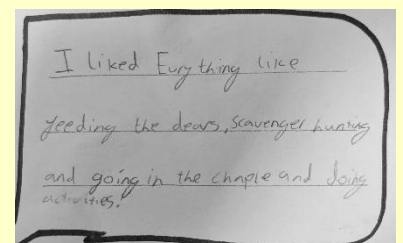 I liked Eurything like
feeding the dears, Scavenger hunting
and going in the chaple and doing
activities!